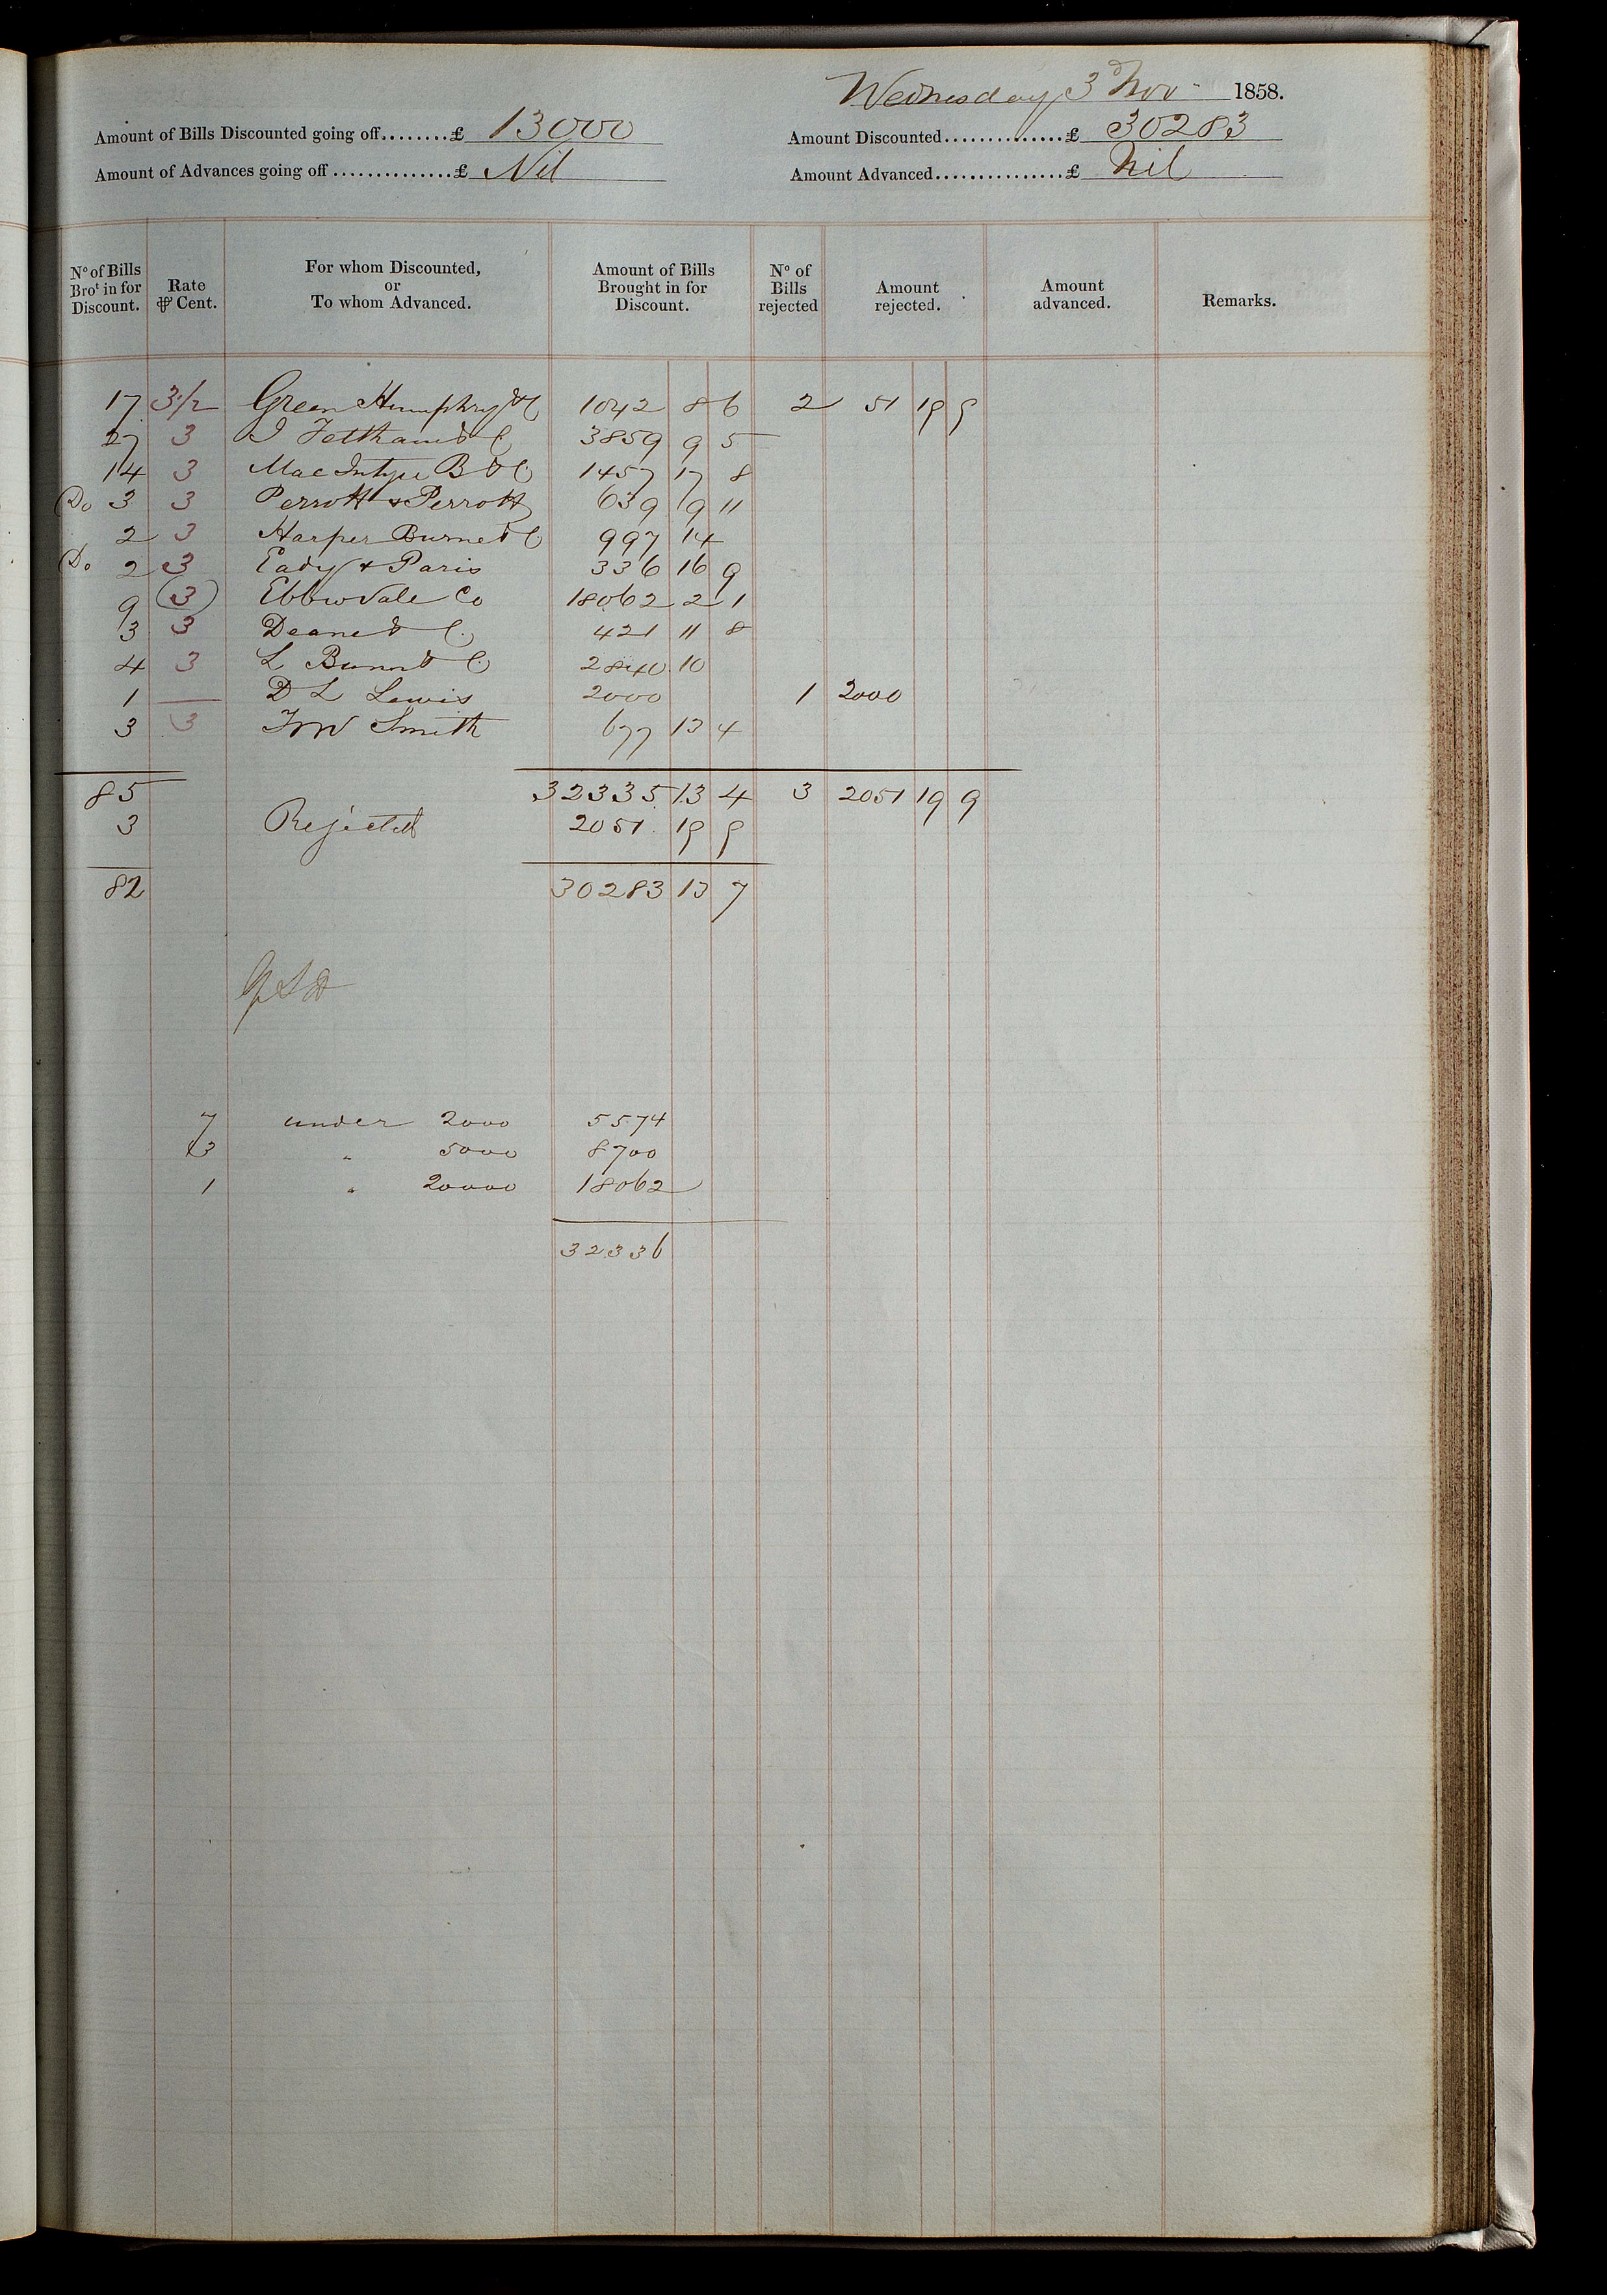 Wednesday 3 Nov 1858.
Amount of Bills Discounted going off........£ 13000 Amount Discounted..............£ 30283
Amount of Advances going off..............£ Nil Amount Advanced...............£ Nil
No of Bills Brot in for Discount. Rate ⅌ Cent. For whom Discounted, or To whom Advanced. Amount of Bills Brought in for Discount. No of Bills rejected Amount rejected. Amount advanced. Remarks.
17 3½ Green Humphrys & C 1042 8 6 2 51 19 9
27 3 J Feltham & C 3859 9 5
14 3 MacIntyre B & Co 1457 17 8
Do 3 3 Perrott & Perrott 639 9 11
2 3 Harper Burnet C 997 14
Do 2 3 Eady & Paris 336 16 9
9 (3) Ebbw Vale Co 18062 2 1
3 3 Deane & C. 421 11 8
4 3 L & Co 2840 10
1 — D L Lewis 2000 1 2000
3 3 Smith 677 13 4
85 32335 13 4 3 2051 19 9
3 Rejected 2051 19 9
82 30283 13 7
7 under 2000 5574
3 " 5000 8700
1 " 20000 18062
32336